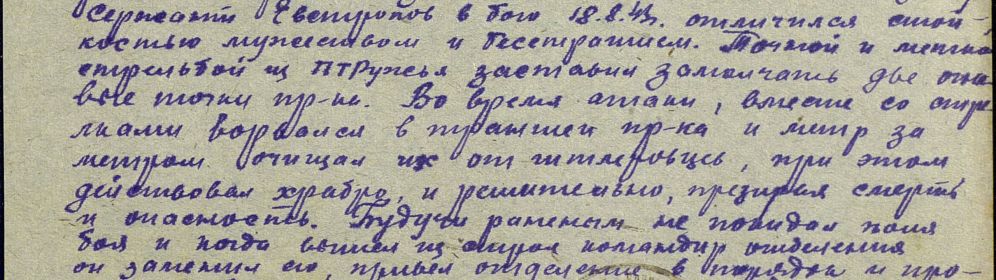 Сержант Евстропов в бою 18.8.43. отличился стой-
костью мужеством и бесстрашием. Точной и меткой
стрельбой из ПТРужья заставил замолчать две огне
вые точки пр-ка. Во время атаки, вместе со стре
лками ворвался в траншеи пр-ка и метр за
метром очищал их от гитлеровцев, при этом
действовал храбро, и решительно, презирая смерть
и опасность. Будучи раненым не покидал поля
боя и когда вышел из строя командир отделения
он заменил его, привел отделение в порядок и про-